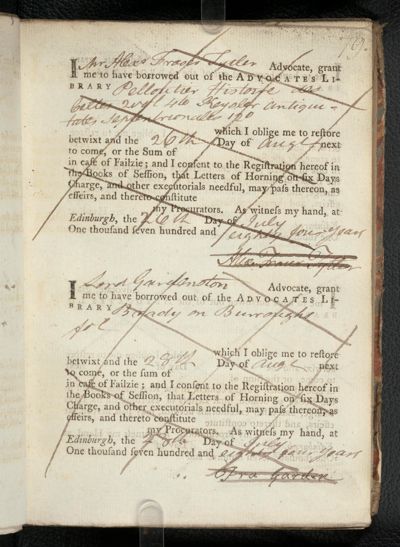 79.
I Mr Alexr Fraser Tytler Advocate, grant
me to have borrowed out of the ADVOCATES LI-
BRARY Pelloutier Histoire des
Celtes 2 vol 4to Keysler Antiqui-
tates Septentrionales 12o
which I oblige me to restore
betwixt and the 26th Day of augt next
to come, or the Sum of
in caſe of Failzie; and I conſent to the Regiſtration hereof in
the Books of Seſſion, that Letters of Horning on ſix Days
Charge, and other executorials needful, may paſs thereon, as
effeirs, and thereto conſtitute
my Procurators. As witneſs my hand, at
Edinburgh, the 26th Day of July
One thouſand ſeven hundred and eighty four years
Alex Fraser Tytler
I Lord Gardenston Advocate, grant
me to have borrowed out of the ADVOCATES LI-
BRARY Brady on Burroughs
fol
which I oblige me to reſtore
betwixt and the 28th Day of augt next
to come, or the sum of
in caſe of Failzie; and I conſent to the Regiſtration hereof in
the Books of Seſſion, that Letters of Horning on ſix Days
Charge, and other executorials needful, may paſs thereon, as
effeirs, and thereto conſtitute
my Procurators. As witneſs my hand, at
Edinburgh, the 28th Day of July
One thouſand ſeven hundred and eighty four years
Fra Garden